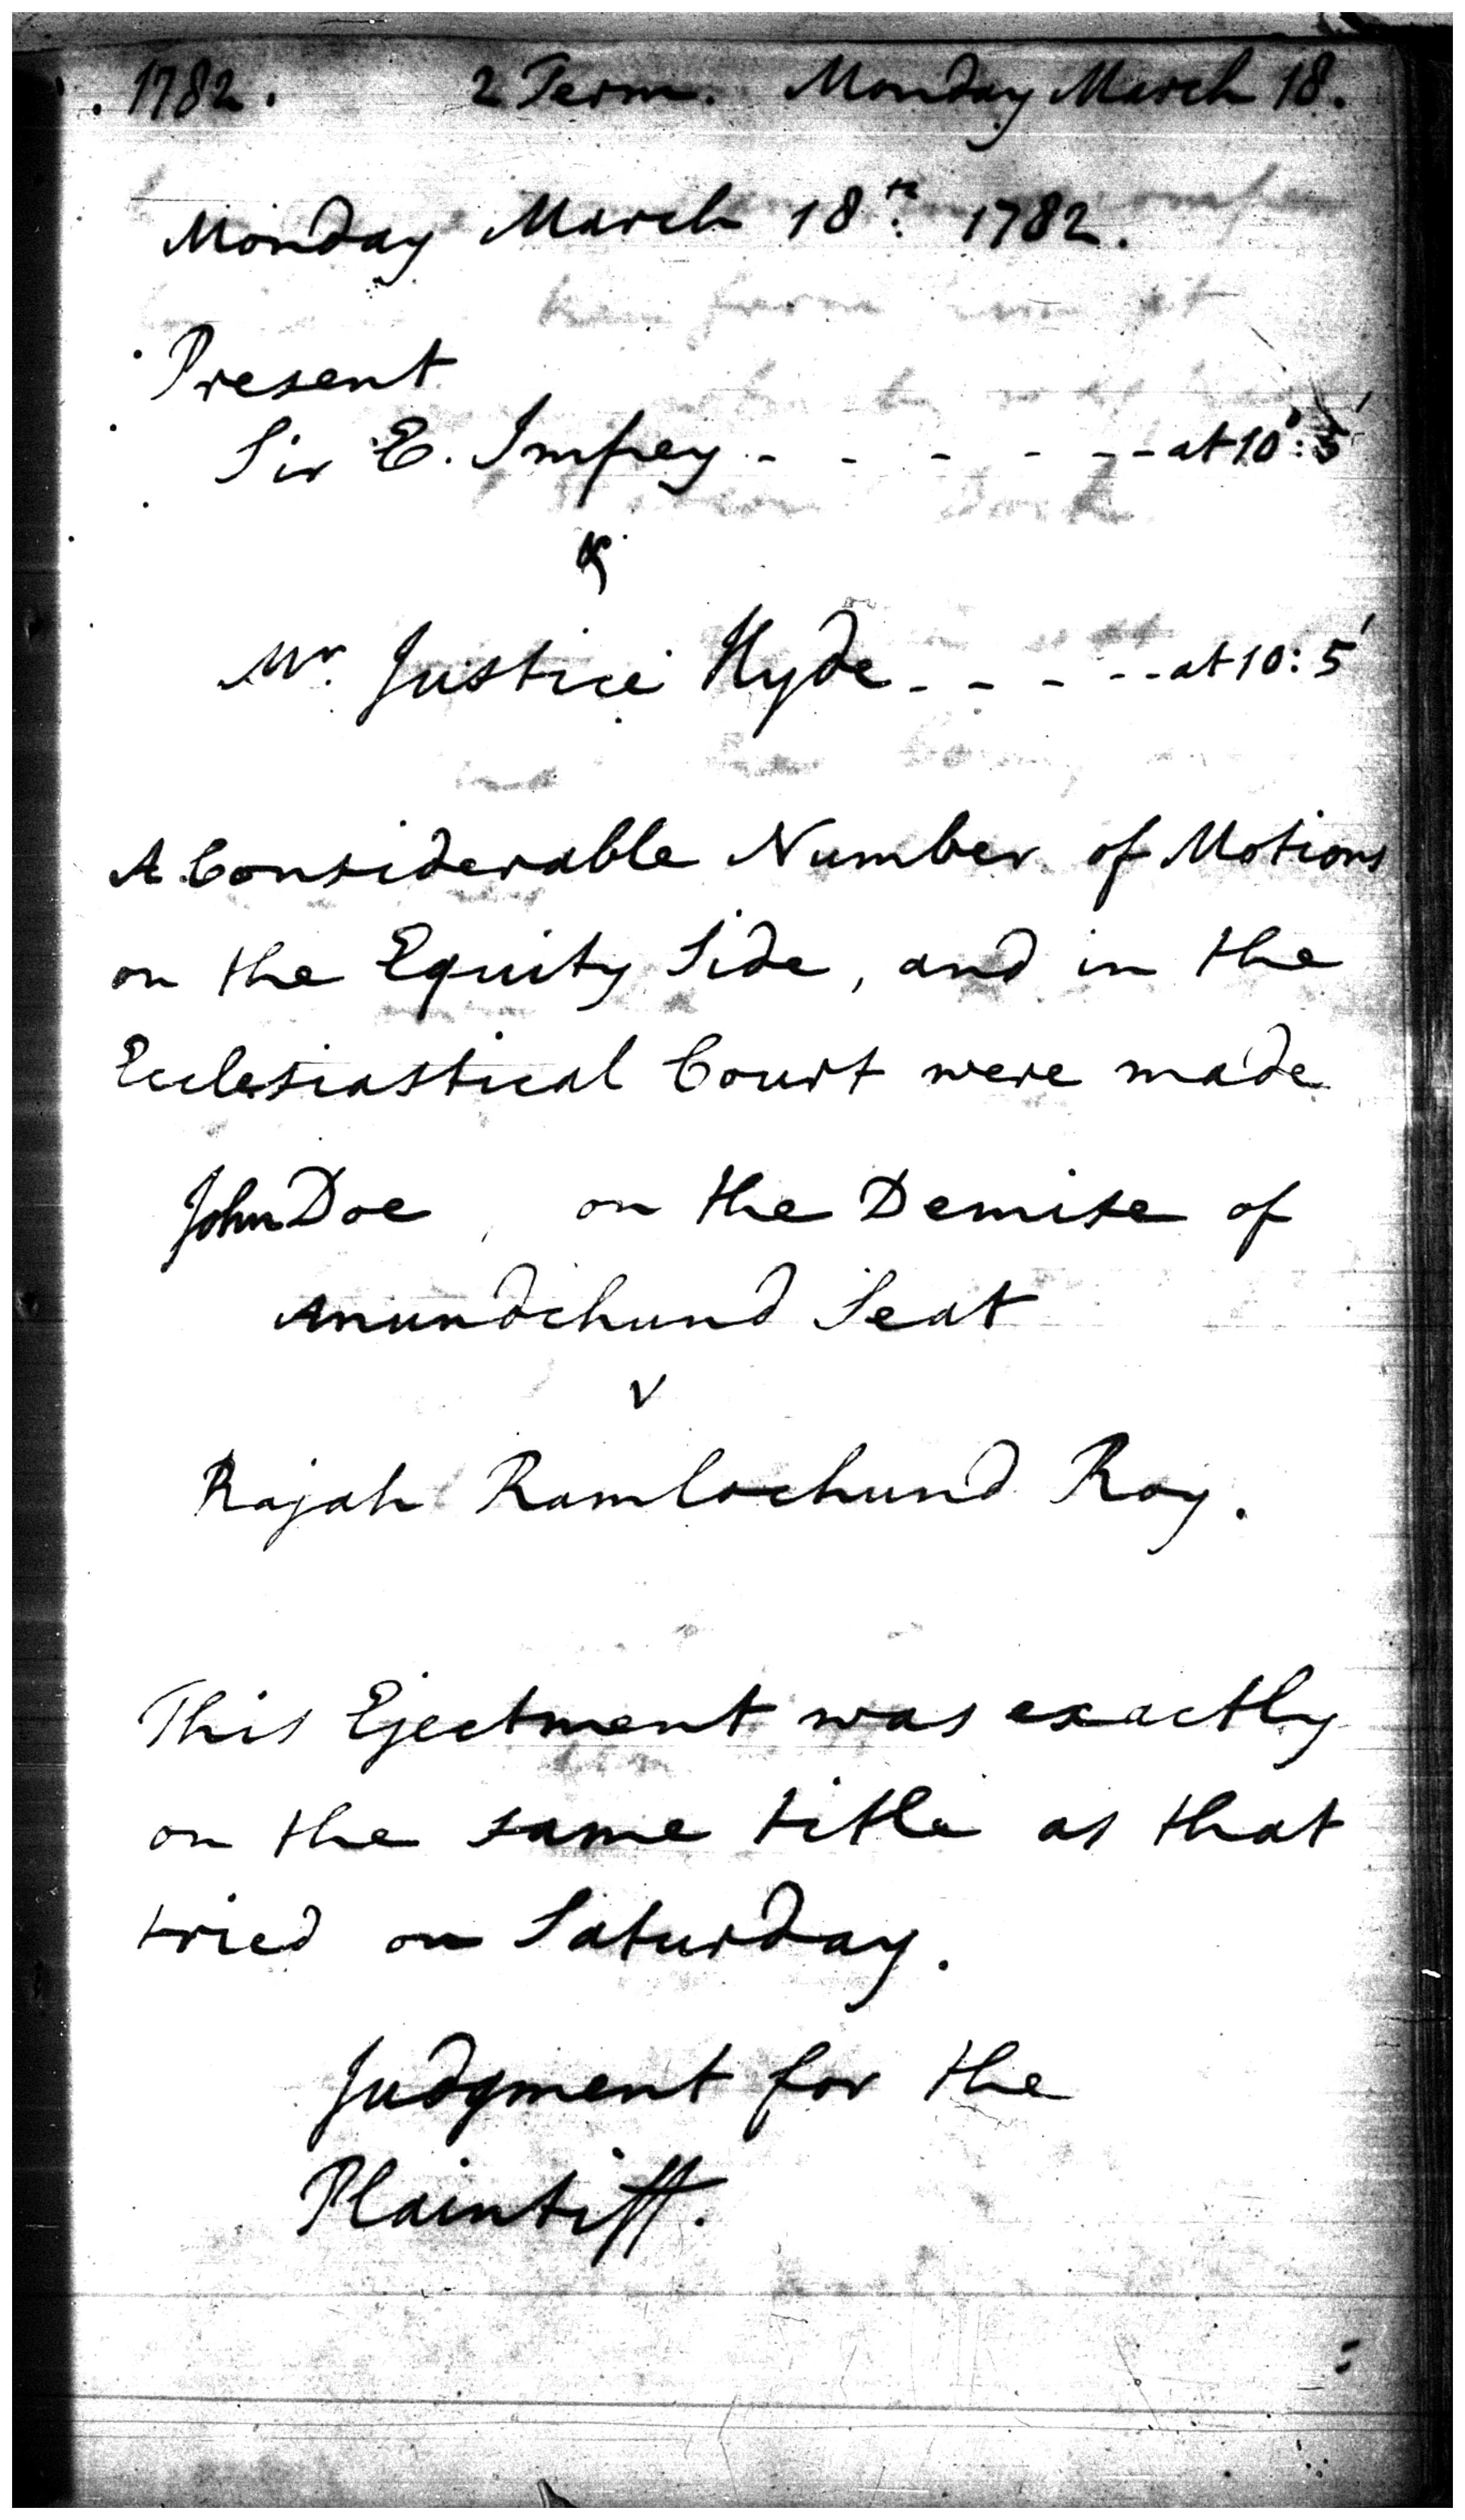 1782. 2 Term. Monday March 18.
Monday March 18th. 1782.
Present
Sir E. Impey - - - - - - at 10: 5'
&
Mr. Justice Hyde - - - - - at 10: 5'
A Considerable Number of Motions
on the Equity Side, and in the
Ecclesiastical Court were made
John Doe, on the Demise of
Anundchund Seat
v
Rajah Ramlochund Roy.
This Ejectment was exactly
on the same title as that
tried on Saturday.
Judgment for the
Plaintiff.